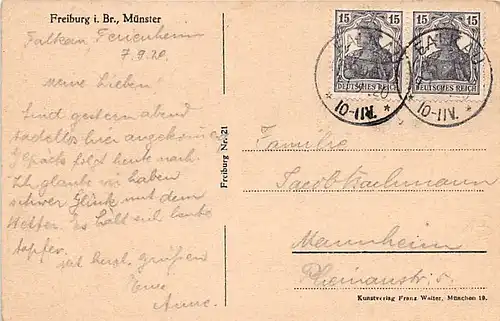 Freiburg i. Br., Münster
Falkau Ferienheim
7.9.20.
Meine Lieben!
Sind gestern abend
tadellos hier angekommen
Gepäck folgt heute nach.
Ich glaube wir haben
schwer Glück mit dem
Wetter. Es hält sich
tapfer.
Mit herzl. grüßen
Eure
Anne.
Freiburg Nr. 21
15 15 15 15
DEUTSCHES REICH DEUTSCHES REICH
FALKAU FALKAU
* 10-11V. * * 10-11V. *
Familie
Jacob Bachmann
Mannheim
Rheinaustr.
Kunstverlag Franz Walter, München 19.